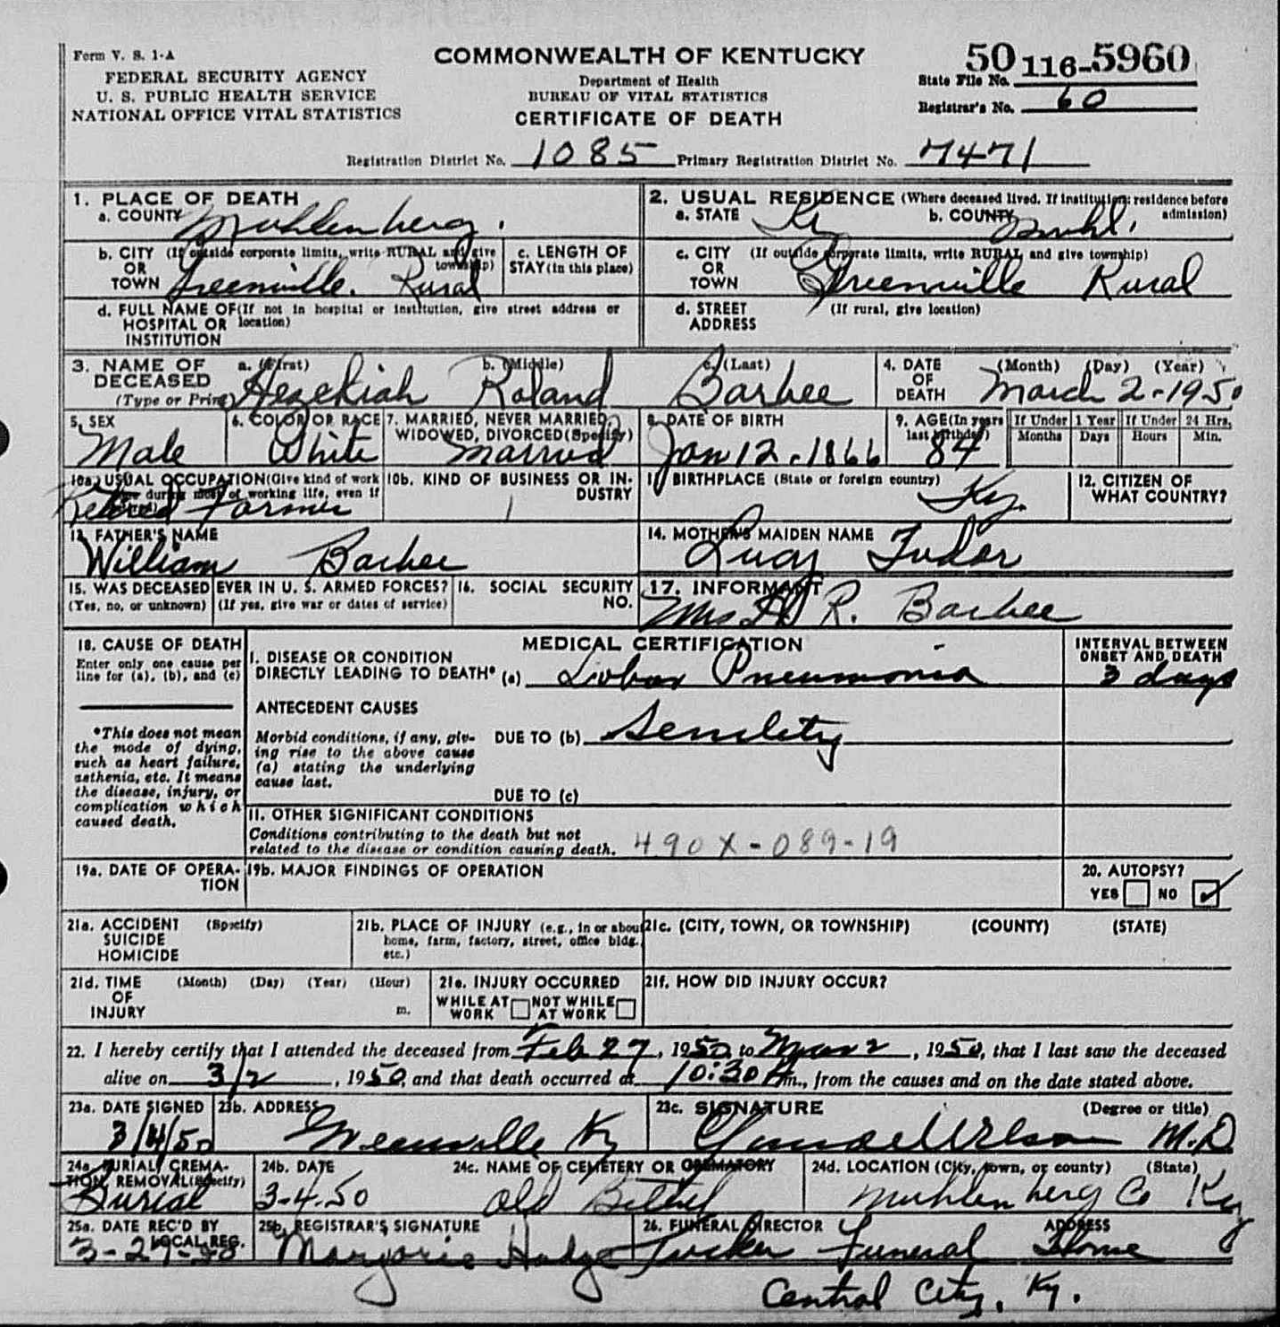 Form V. S. 1-A
FEDERAL SECURITY AGENCY
U. S. PUBLIC HEALTH SERVICE
NATIONAL OFFICE VITAL STATISTICS
COMMONWEALTH OF KENTUCKY
Department of Health
BUREAU OF VITAL STATISTICS
CERTIFICATE OF DEATH
State File No. 50 116-5960
Registrar's No. 60
Registration District No. 1085 Primary Registration District No. 7471
1. PLACE OF DEATH
a. COUNTY Muhlenberg.
b. CITY (If outside corporate limits, write RURAL and give township)
OR
TOWN Greenville. Rural
c. LENGTH OF STAY (in this place)
d. FULL NAME OF (If not in hospital or institution, give street address or location)
HOSPITAL OR
INSTITUTION
2. USUAL RESIDENCE (Where deceased lived. If institution: residence before admission)
a. STATE Ky b. COUNTY Muhl.
c. CITY (If outside corporate limits, write RURAL and give township)
OR
TOWN Greenville Rural
d. STREET ADDRESS (If rural, give location)
3. NAME OF DECEASED (Type or Print) a. (First) Hezekiah b. (Middle) Roland c. (Last) Barbee
4. DATE OF DEATH (Month) (Day) (Year) March 2-1950
5. SEX Male
6. COLOR OR RACE White
7. MARRIED, NEVER MARRIED, WIDOWED, DIVORCED (Specify) Married
8. DATE OF BIRTH Jan 12-1866
9. AGE (In years last birthday) 84
If Under 1 Year Months Days
If Under 24 Hrs. Hours Min.
10a. USUAL OCCUPATION (Give kind of work done during most of working life, even if retired) Retired Farmer
10b. KIND OF BUSINESS OR INDUSTRY
11. BIRTHPLACE (State or foreign country) Ky.
12. CITIZEN OF WHAT COUNTRY?
13. FATHER'S NAME William Barbee
14. MOTHER'S MAIDEN NAME Lucy Tudor
15. WAS DECEASED EVER IN U. S. ARMED FORCES?
(Yes, no, or unknown) (If yes, give war or dates of service)
16. SOCIAL SECURITY NO.
17. INFORMANT Mrs H R. Barbee
18. CAUSE OF DEATH
Enter only one cause per line for (a), (b), and (c)
*This does not mean the mode of dying, such as heart failure, asthenia, etc. It means the disease, injury, or complication which caused death.
MEDICAL CERTIFICATION
I. DISEASE OR CONDITION DIRECTLY LEADING TO DEATH* (a) Lobar Pneumonia
INTERVAL BETWEEN ONSET AND DEATH 3 days
ANTECEDENT CAUSES
Morbid conditions, if any, giving rise to the above cause (a) stating the underlying cause last.
DUE TO (b) Senility
DUE TO (c)
II. OTHER SIGNIFICANT CONDITIONS
Conditions contributing to the death but not related to the disease or condition causing death. 490X-089-19
19a. DATE OF OPERATION
19b. MAJOR FINDINGS OF OPERATION
20. AUTOPSY?
YES NO ✓
21a. ACCIDENT (Specify)
SUICIDE
HOMICIDE
21b. PLACE OF INJURY (e.g., in or about home, farm, factory, street, office bldg., etc.)
21c. (CITY, TOWN, OR TOWNSHIP) (COUNTY) (STATE)
21d. TIME OF INJURY (Month) (Day) (Year) (Hour) m.
21e. INJURY OCCURRED
WHILE AT WORK NOT WHILE AT WORK
21f. HOW DID INJURY OCCUR?
22. I hereby certify that I attended the deceased from Feb 27, 1950 to Mar 2, 1950, that I last saw the deceased
alive on 3/2, 1950, and that death occurred at 10:30 P m., from the causes and on the date stated above.
23a. DATE SIGNED 3/4/50
23b. ADDRESS Greenville Ky
23c. SIGNATURE (Degree or title) Wilson M.D
24a. BURIAL, CREMATION, REMOVAL (Specify) Burial
24b. DATE 3-4.50
24c. NAME OF CEMETERY OR CREMATORY Old Bethel
24d. LOCATION (City, town, or county) (State) Muhlenberg Co Ky
25a. DATE REC'D BY LOCAL REG. 3-27-50
25b. REGISTRAR'S SIGNATURE Marjorie Hodge
26. FUNERAL DIRECTOR ADDRESS Tucker Funeral Home
Central City, Ky.